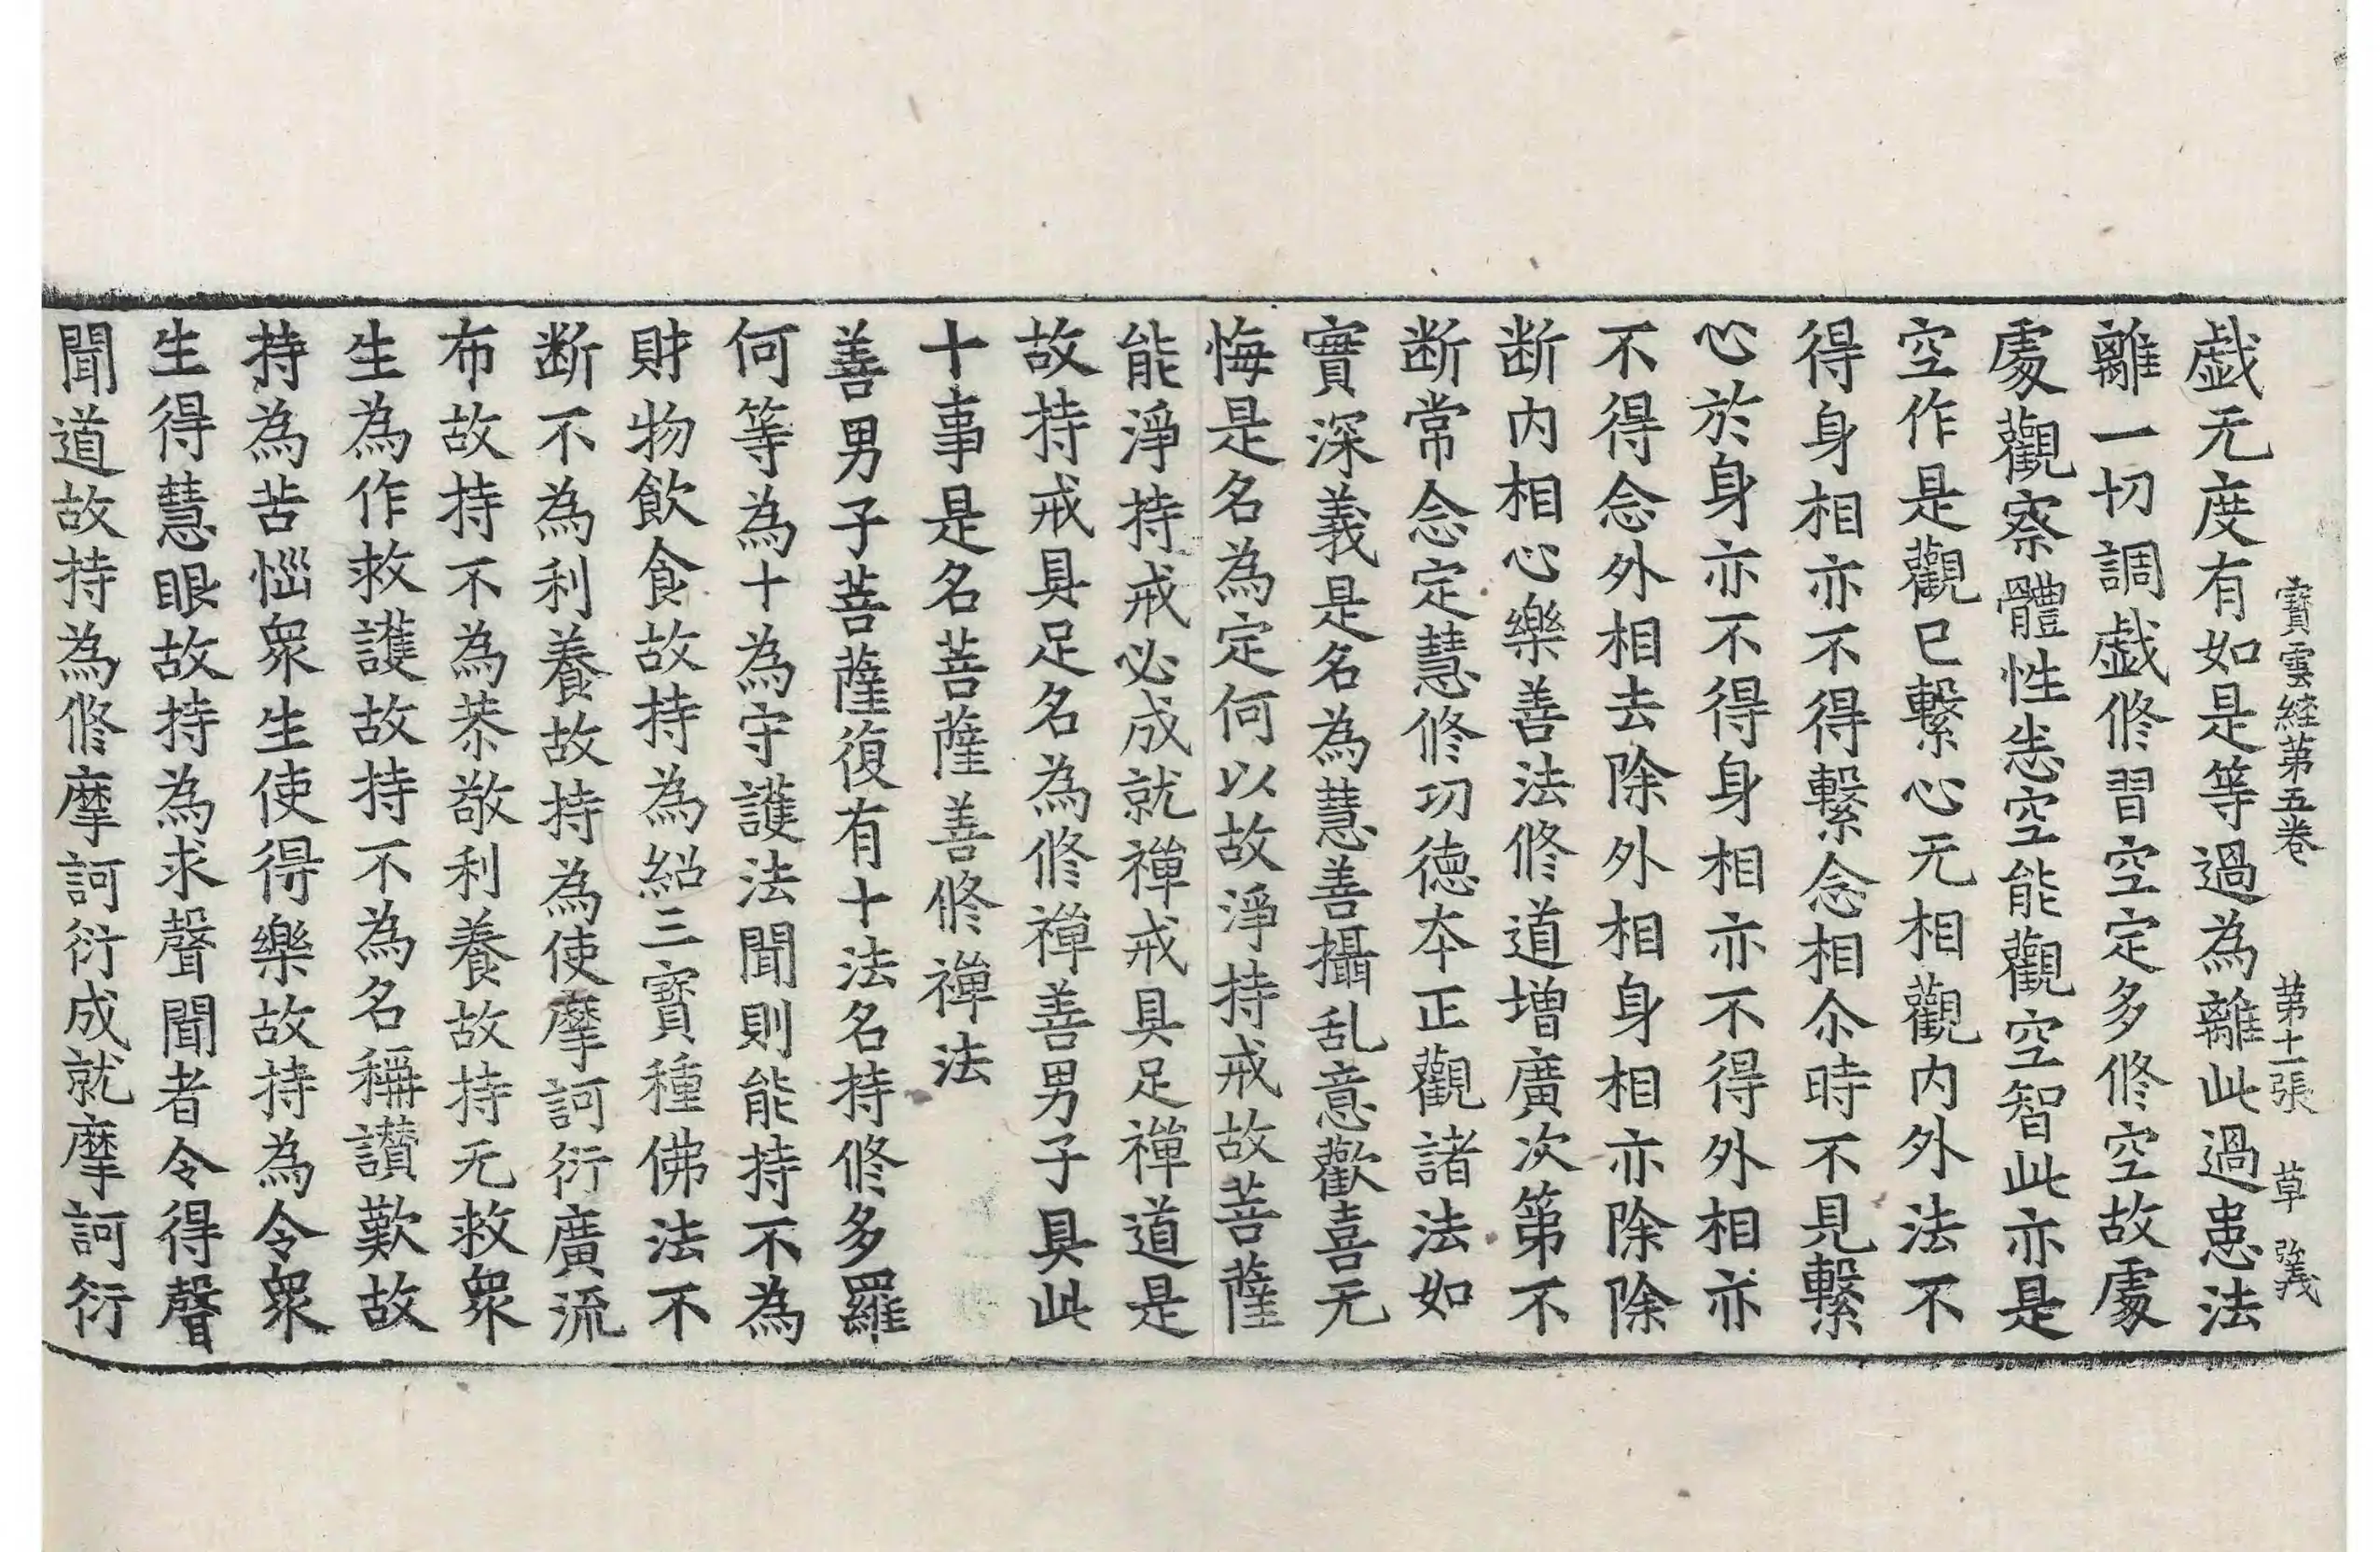 寶雲経苐五巻 苐十二張 草 強義
戱无度有如是等過為離此過患法
離一切調戱修習空定多修空故處
處觀察體性恙空能觀空智此亦是
空作是觀已繫心无相觀内外法不
得身相亦不得繫念相尒時不見繫
心於身亦不得身相亦不得外相亦
不得念外相去除外相身相亦除除
断内相心樂善法修道增廣次第不
断常念定慧修功德本正觀諸法如
實深義是名為慧善攝乱意歡喜无
悔是名為定何以故淨持戒故菩薩
能淨持戒必成就禪戒具足禪道是
故持戒具足名為修禪善男子具此
十事是名菩薩善修禪法
善男子菩薩復有十法名持修多羅
何等為十為守護法聞則能持不為
財物飲食故持為紹三寶種佛法不
断不為利養故持為使摩訶衍廣流
布故持不為恭敬利養故持无救衆
生為作救護故持不為名稱讃歎故
持為苦惱衆生使得樂故持為令衆
生得慧眼故持為求聲聞者令得聲
聞道故持為修摩訶衍成就摩訶衍